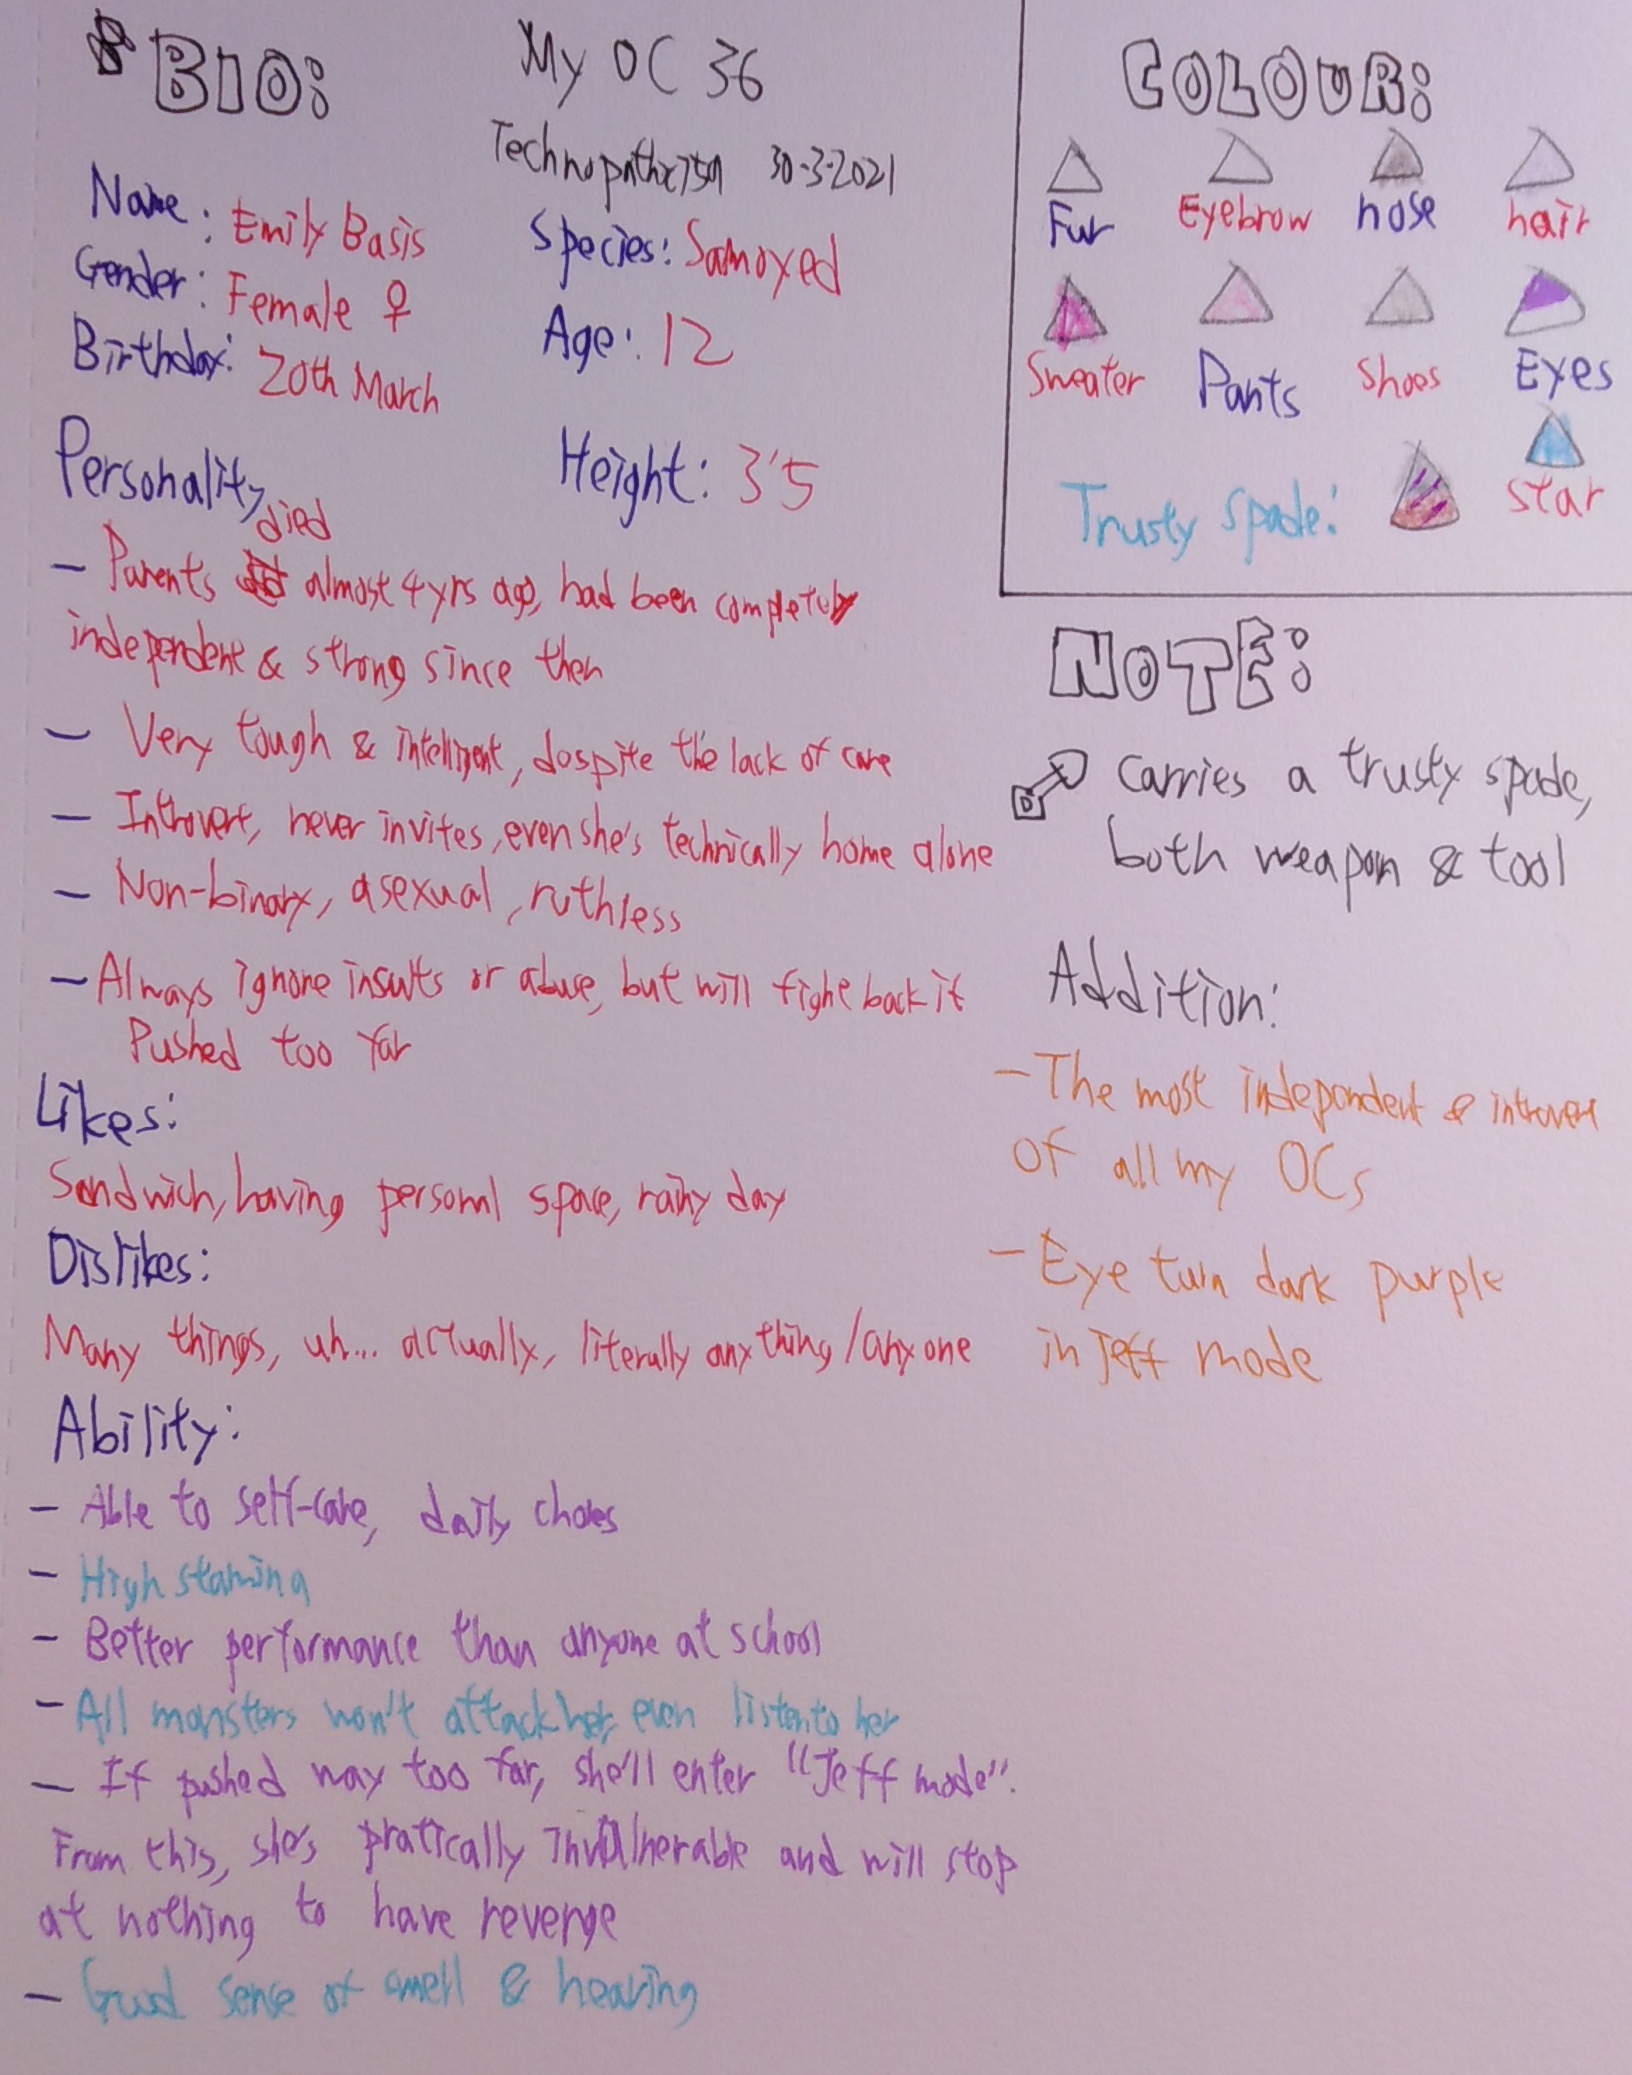 BIO:
My OC 36
Technopathx759 30-3-2021
Name: Emily Basis
Species: Samoyed
Gender: Female ♀
Age: 12
Birthday: 20th March
Height: 3'5
Personality
died
- Parents almost 4yrs ago, had been completely
independent & strong since then
- Very tough & intelligent, despite the lack of care
- Introvert, never invites, even she's technically home alone
- Non-binary, asexual, ruthless
- Always ignore insults or abuse, but will fight back if
Pushed too far
Likes:
Sandwich, having personal space, rainy day
Dislikes:
Many things, uh... actually, literally anything/anyone
Ability:
- Able to self-care, daily chores
- High stamina
- Better performance than anyone at school
- All monsters won't attack her, even listen to her
- If pushed way too far, she'll enter "Jeff mode".
From this, she's pratically invulnerable and will stop
at nothing to have revenge
- Good sense of smell & hearing
COLOUR:
Fur Eyebrow nose hair
Sweater Pants Shoes Eyes
Trusty spade: star
NOTE:
carries a trusty spade,
both weapon & tool
Addition:
- The most independent & introvert
of all my OCs
- Eye turn dark purple
in Jeff mode